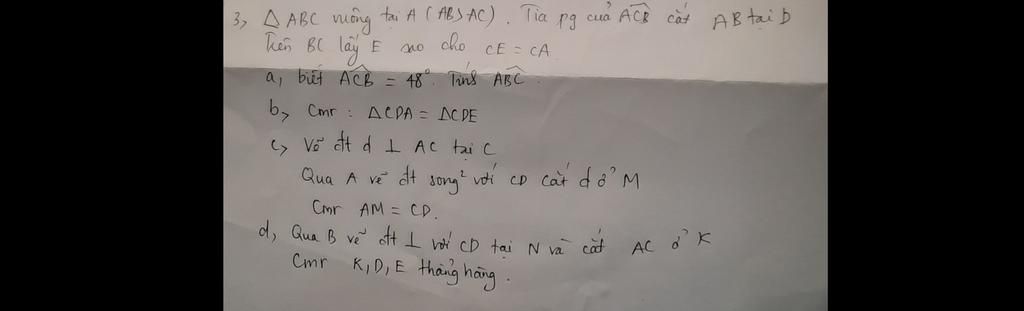 3, △ ABC vuông tại A (AB>AC). Tia pg của ACB cắt AB tại D
Trên BC lấy E sao cho CE = CA
a, biết ACB = 48°. Tính ABC.
b, Cmr : △CDA = △CDE
c, Vẽ đt d ⊥ AC tại C
Qua A vẽ đt song² với CD cắt d ở M
Cmr AM = CD.
d, Qua B vẽ đt ⊥ với CD tại N và cắt AC ở K
Cmr K, D, E thẳng hàng.